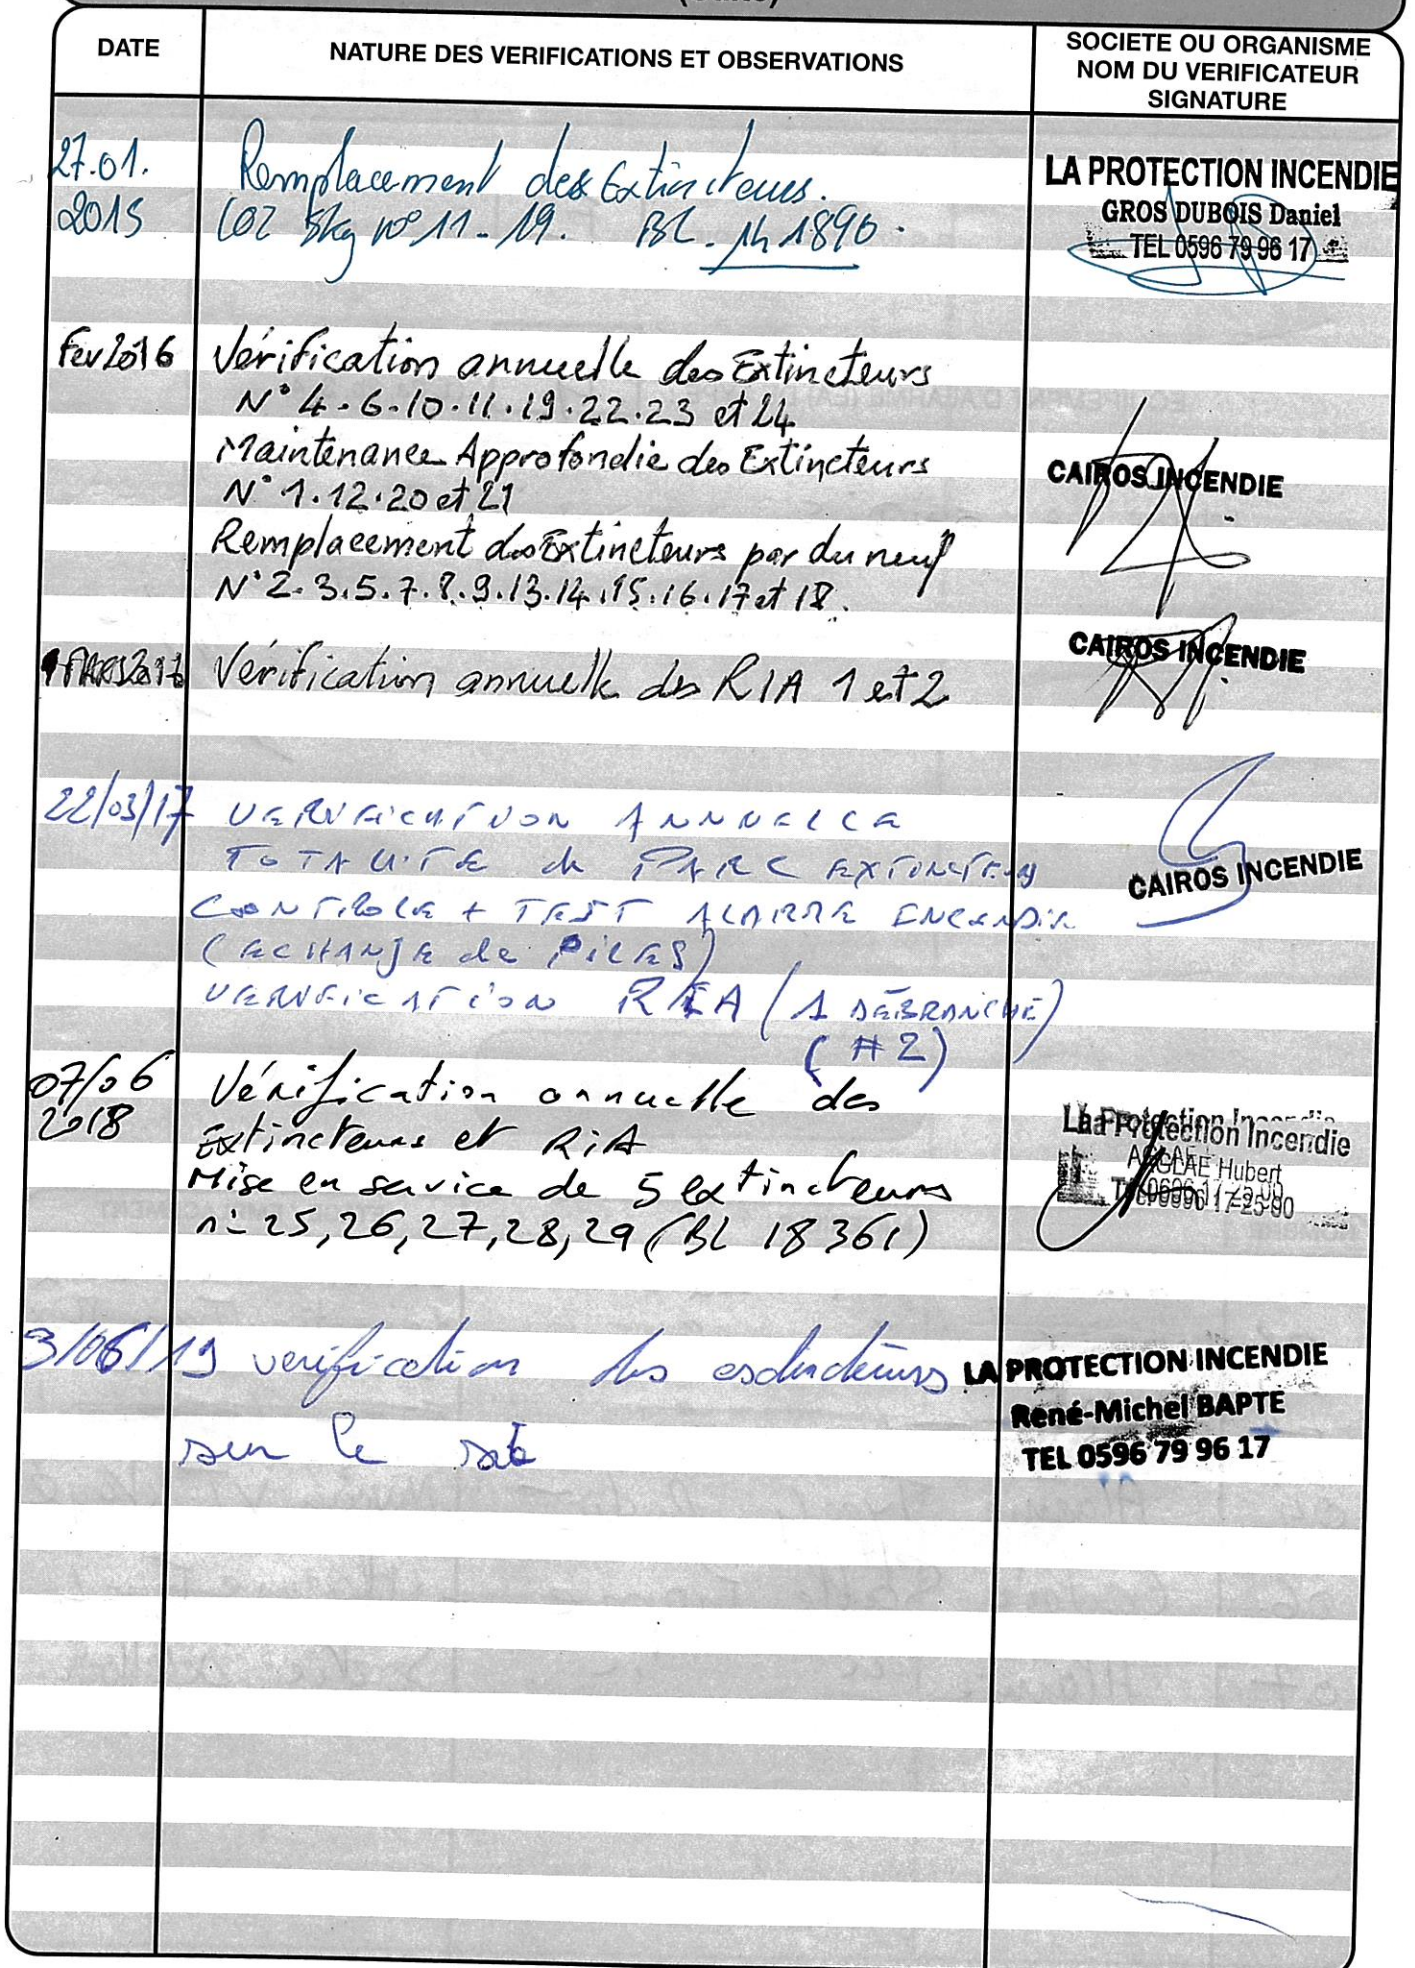 DATE
NATURE DES VERIFICATIONS ET OBSERVATIONS
SOCIETE OU ORGANISME
NOM DU VERIFICATEUR
SIGNATURE
27.01.
2015
Remplacement des Extincteurs.
CO2 5kg n° 11-19. BL. 141890.
LA PROTECTION INCENDIE
GROS DUBOIS Daniel
TEL 0596 79 96 17
Fev 2016
Vérification annuelle des Extincteurs
N° 4.6.10.11.19.22.23 et 24
Maintenance Approfondie des Extincteurs
N° 1.12.20 et 21
Remplacement des Extincteurs par du neuf
N° 2.3.5.7.8.9.13.14.15.16.17 et 18.
CAIROS INCENDIE
Vérification annuelle des RIA 1 et 2
CAIROS INCENDIE
22/03/17
VERIFICATION ANNUELLE
TOTALITE de PARC EXTINCTEUR
CONTROLE + TEST ALARME INCENDIE
(ECHANGE de PILES)
VERIFICATION RIA (1 DÉBRANCHÉ)
(#2)
CAIROS INCENDIE
07/06
2018
Vérification annuelle des
Extincteurs et RiA
Mise en service de 5 extincteurs
n° 25, 26, 27, 28, 29 (BL 18361)
La Protection Incendie
AGLAE Hubert
3/06/19
verification des extincteurs
sur le site
LA PROTECTION INCENDIE
René-Michel BAPTE
TEL 0596 79 96 17